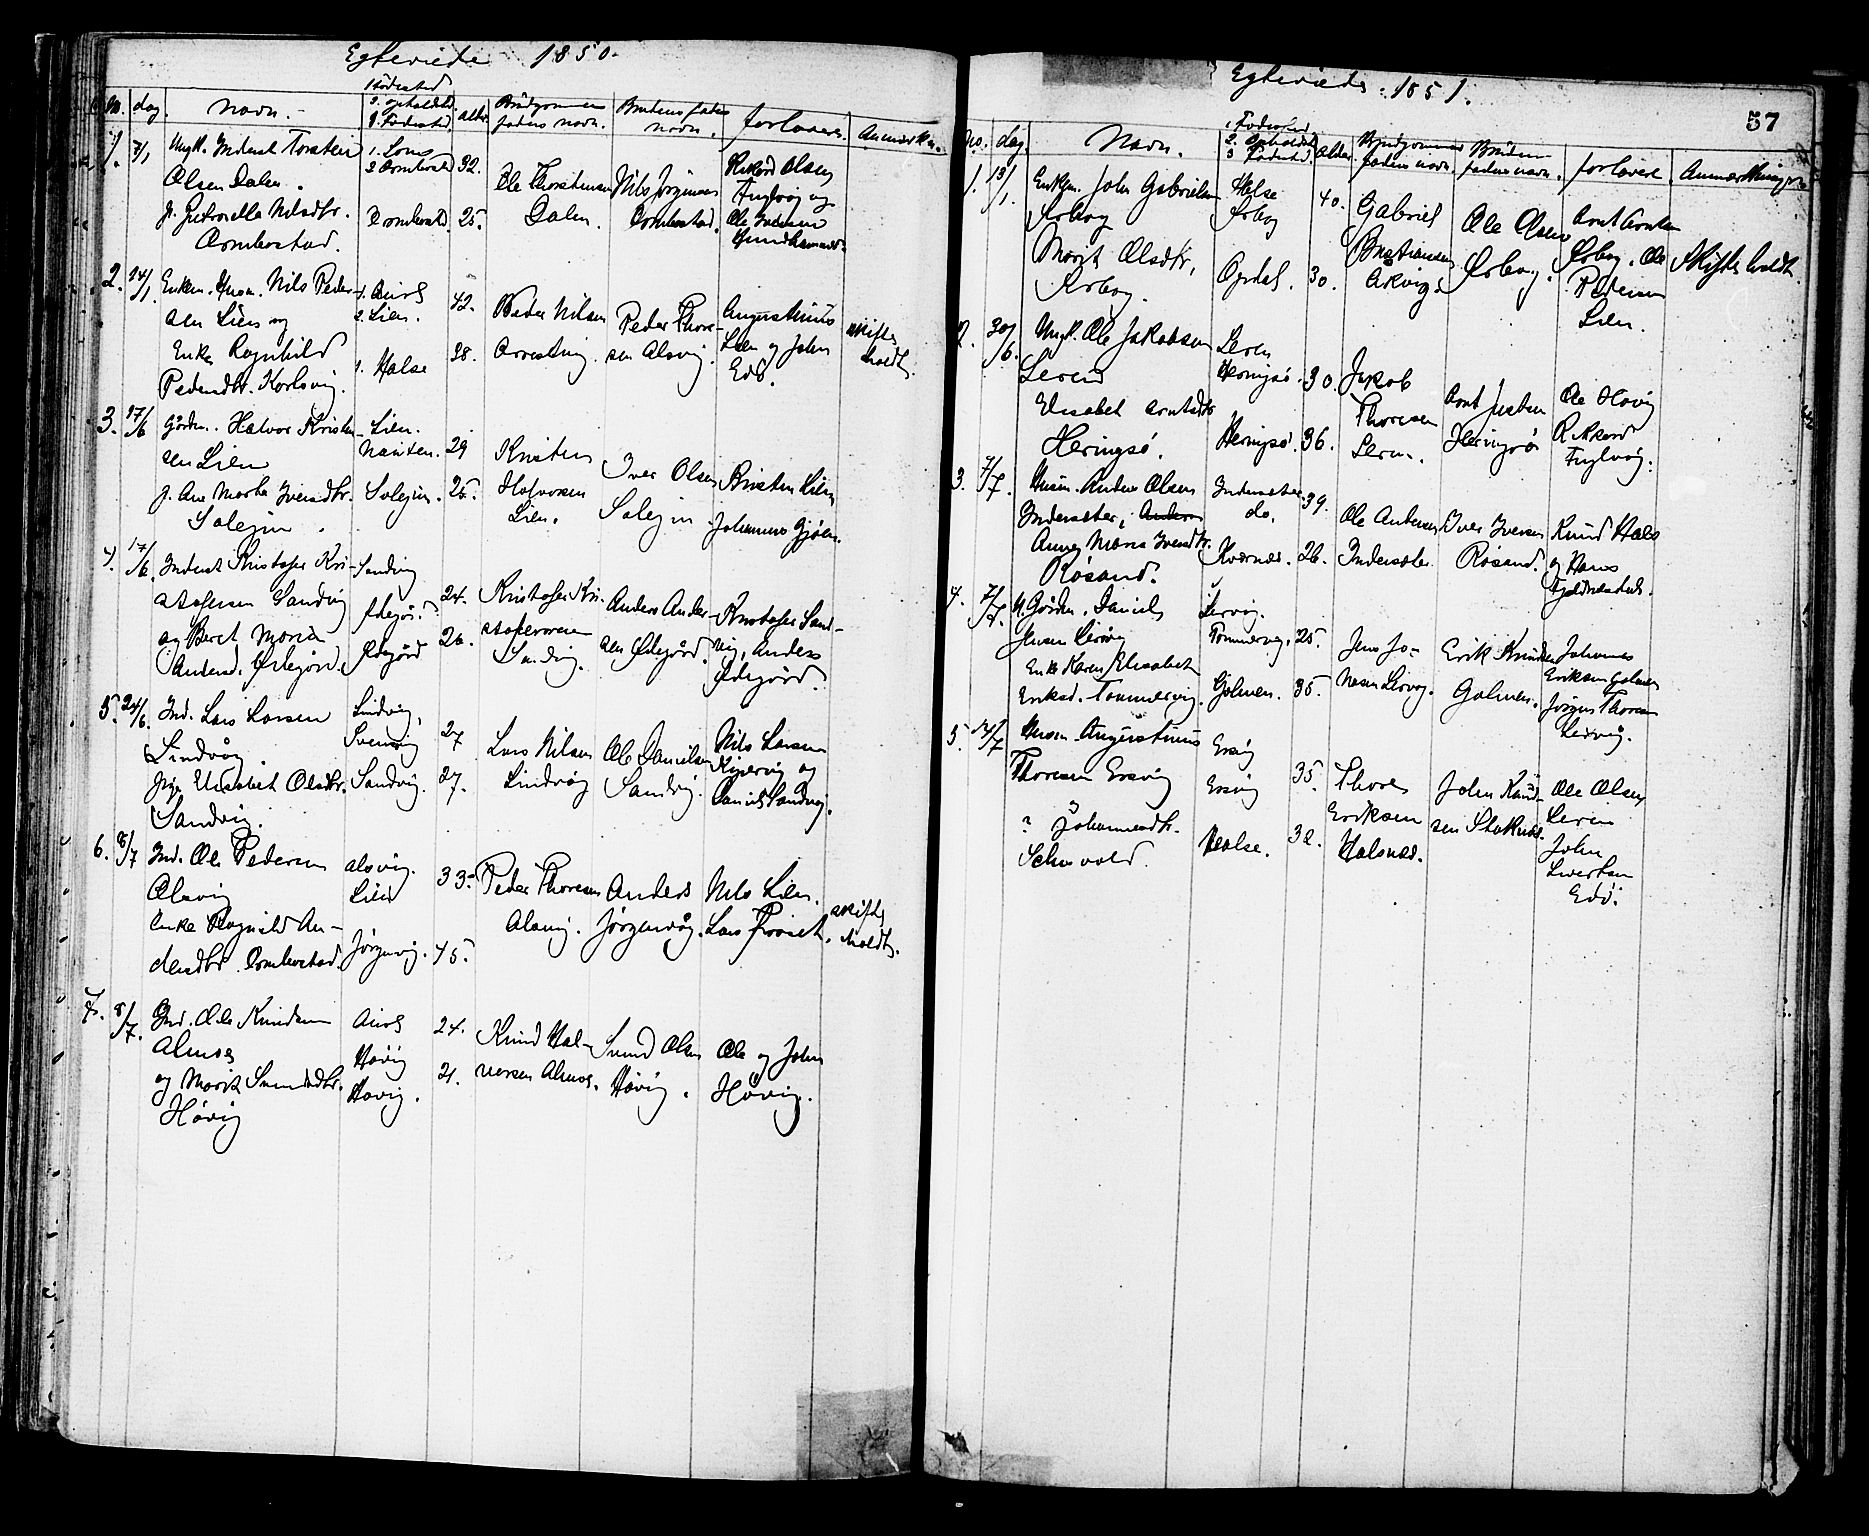 Egteviede 1850.
No. dag. Navn. 1 Fødested 2. opholdsted 3. Fødested. alder Brudgommens faders navn. Brudens faders navn. forlovere. Anmærkn.
1. 7/1 Ungk. Inderst Torsten
Olsen Dalen.
p. Petronella Nilsdtr.
Ormbostad.
1. Lom
2 Ormbostad
Ormbostad
32.
25.
Ole Thorstensen
Dalen.
Nils Jørgensen
Ormbostad.
Rikard Olsen
Fuglvog og
Ole Iversen
2. 14/1 Enkem. Nils Peder-
sen Lien og
Enke Ragnhild
Pedersdtr. Korsvig.
1. Aure
2. Lien.
1. Halse
42.
38.
Peder Nilsen
Peder Thore-
sen Alsvig.
Augustinus
Lien og John
Edø.
skifte
holdt.
3. 17/6 Gårdm. Halvor Kristen-
sen Lien
p. Ane Marta Iversdtr.
Solejin.
Lien.
Solejin.
29
25.
Kristen
Halvorsen
Lien.
Iver Olsen
Solejin.
Kristen Lien
Johannes Gjøen.
4. 17/6. Inderst Kristofer Kri-
stofersen Sandvig
og Beret Maria
Andersd. Ødegård.
Sandvig
Ødegård
24.
26.
Kristofer Kri-
stofersen
Sandvig.
Anders Ander-
sen Ødegård.
Kristofer Sand-
vig, Anders
Ødegård.
5. 24/6. Ind. Lars Larsen
Lindvåg.
Pige Elisabet Olsdtr.
Sandvig.
Lindvig,
Sandvig.
27
27.
Lars Nilsen
Lindvåg
Ole Danielsen
Sandvig.
Nils Larsen
og
Daniel Sandvig.
6. 8/7 Ind. Ole Pedersen
Alsvig
enke Ragnild An-
dersdtr. Ormbostad.
Alsvig.
Lien
Jørgenvåg.
33.
45.
Peder Thoresen
Alsvig.
Anders
Jørgenvåg.
Nils Lien.
Lars
skifte
holdt.
7. 8/7. Ind. Ole Knudsen
Almos
og Marit Svendsdtr.
Høvig
Aure
Høvig
Høvig.
24.
21.
Knud Hal-
vorsen Almos.
Svend Olsen
Høvig.
Ole og John
Høvig.
Egteviede 1851.
57
No. dag. Navn. 1. Fødested 2. Opholdsted 3 Fødested. Alder Brudgommens faders navn. Brudens faders navn. forlovere. Anmærkninger
1. 13/1. Enkem. John Gabrielsen
Årbog
Marit Olsdtr,
Årbog.
Halse
Årbog
Opdal.
40.
30.
Gabriel
Bastiansen
Arvig.
Ole Olsen
Årbog.
Arnt Arntsen
Årbog. Ole
Pedersen
Lien.
Skifte holdt.
2. 30/6. Ungk. Ole Jakobsen
Leren
Elisabet Arntsdtr
Heringsø.
Leren
Heringsø.
Heringsø.
30.
36.
Jakob
Thoresen
Leren.
Arnt Justen
Heringsø
Ole Høvig
Rikard
Fuglvåg.
3. 7/7. Husm. Anders Olsen
Indersæter, Anders
Anne Maria Iversdtr.
Røsand.
Indersæter
do.
Kvernes.
39.
26.
Ole Andersen
Indersæter
Iver Iversen
Røsand.
Knud Hals
og Hans
4. 7/7. Gårdm. Daniel
Jensen Lervig
Enke Karen Elisabet
Eriksd. Tømmervig.
Lervig.
Tømmervig.
Golmen.
25.
35.
Jens Jo-
nasen Lervog.
Erik Knudsen
Golmen.
Johannes
Eriksen Golmen
Jørgen Thoresen
Lervig.
5. 14/7 Husm. Augustinus
Thoresen Ersvig
? Johannesdtr.
Schevold.
Ersvig
Ersvig
Halse.
35.
32.
Thore
Eriksen
Halsnes.
John Knud-
sen Stoknes.
Ole Olsen
Leren
John
Sivertsen
Edø.